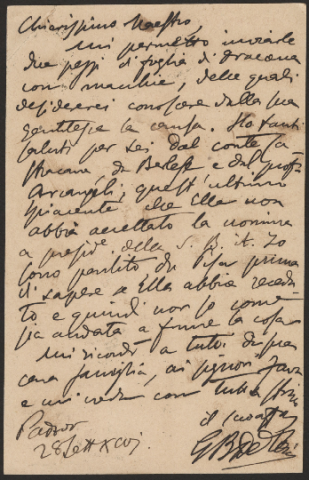 Chiarissimo Maestro,
Mi permetto inviarle
due pezzi di foglia di dracaena
con macchie, delle quali
desidererei conoscere dalla sua
gentilezza la causa. Ho tanti
saluti per Lei dal conte
da Berlese e dal prof.
Arcangeli, quest'ultimo
spiacente che Ella non
abbia accettato la nomina
a presid.e della S. B. I. Io
sono partito da Pisa prima
di sapere se Ella abbia
e quindi non so come
sia andata a finire la cosa
Mi ricordi a tutti di sua
cara famiglia, ai signori
e mi creda con tutta stima
il suo
G B De Toni
Padova
28 Sett XCVI.